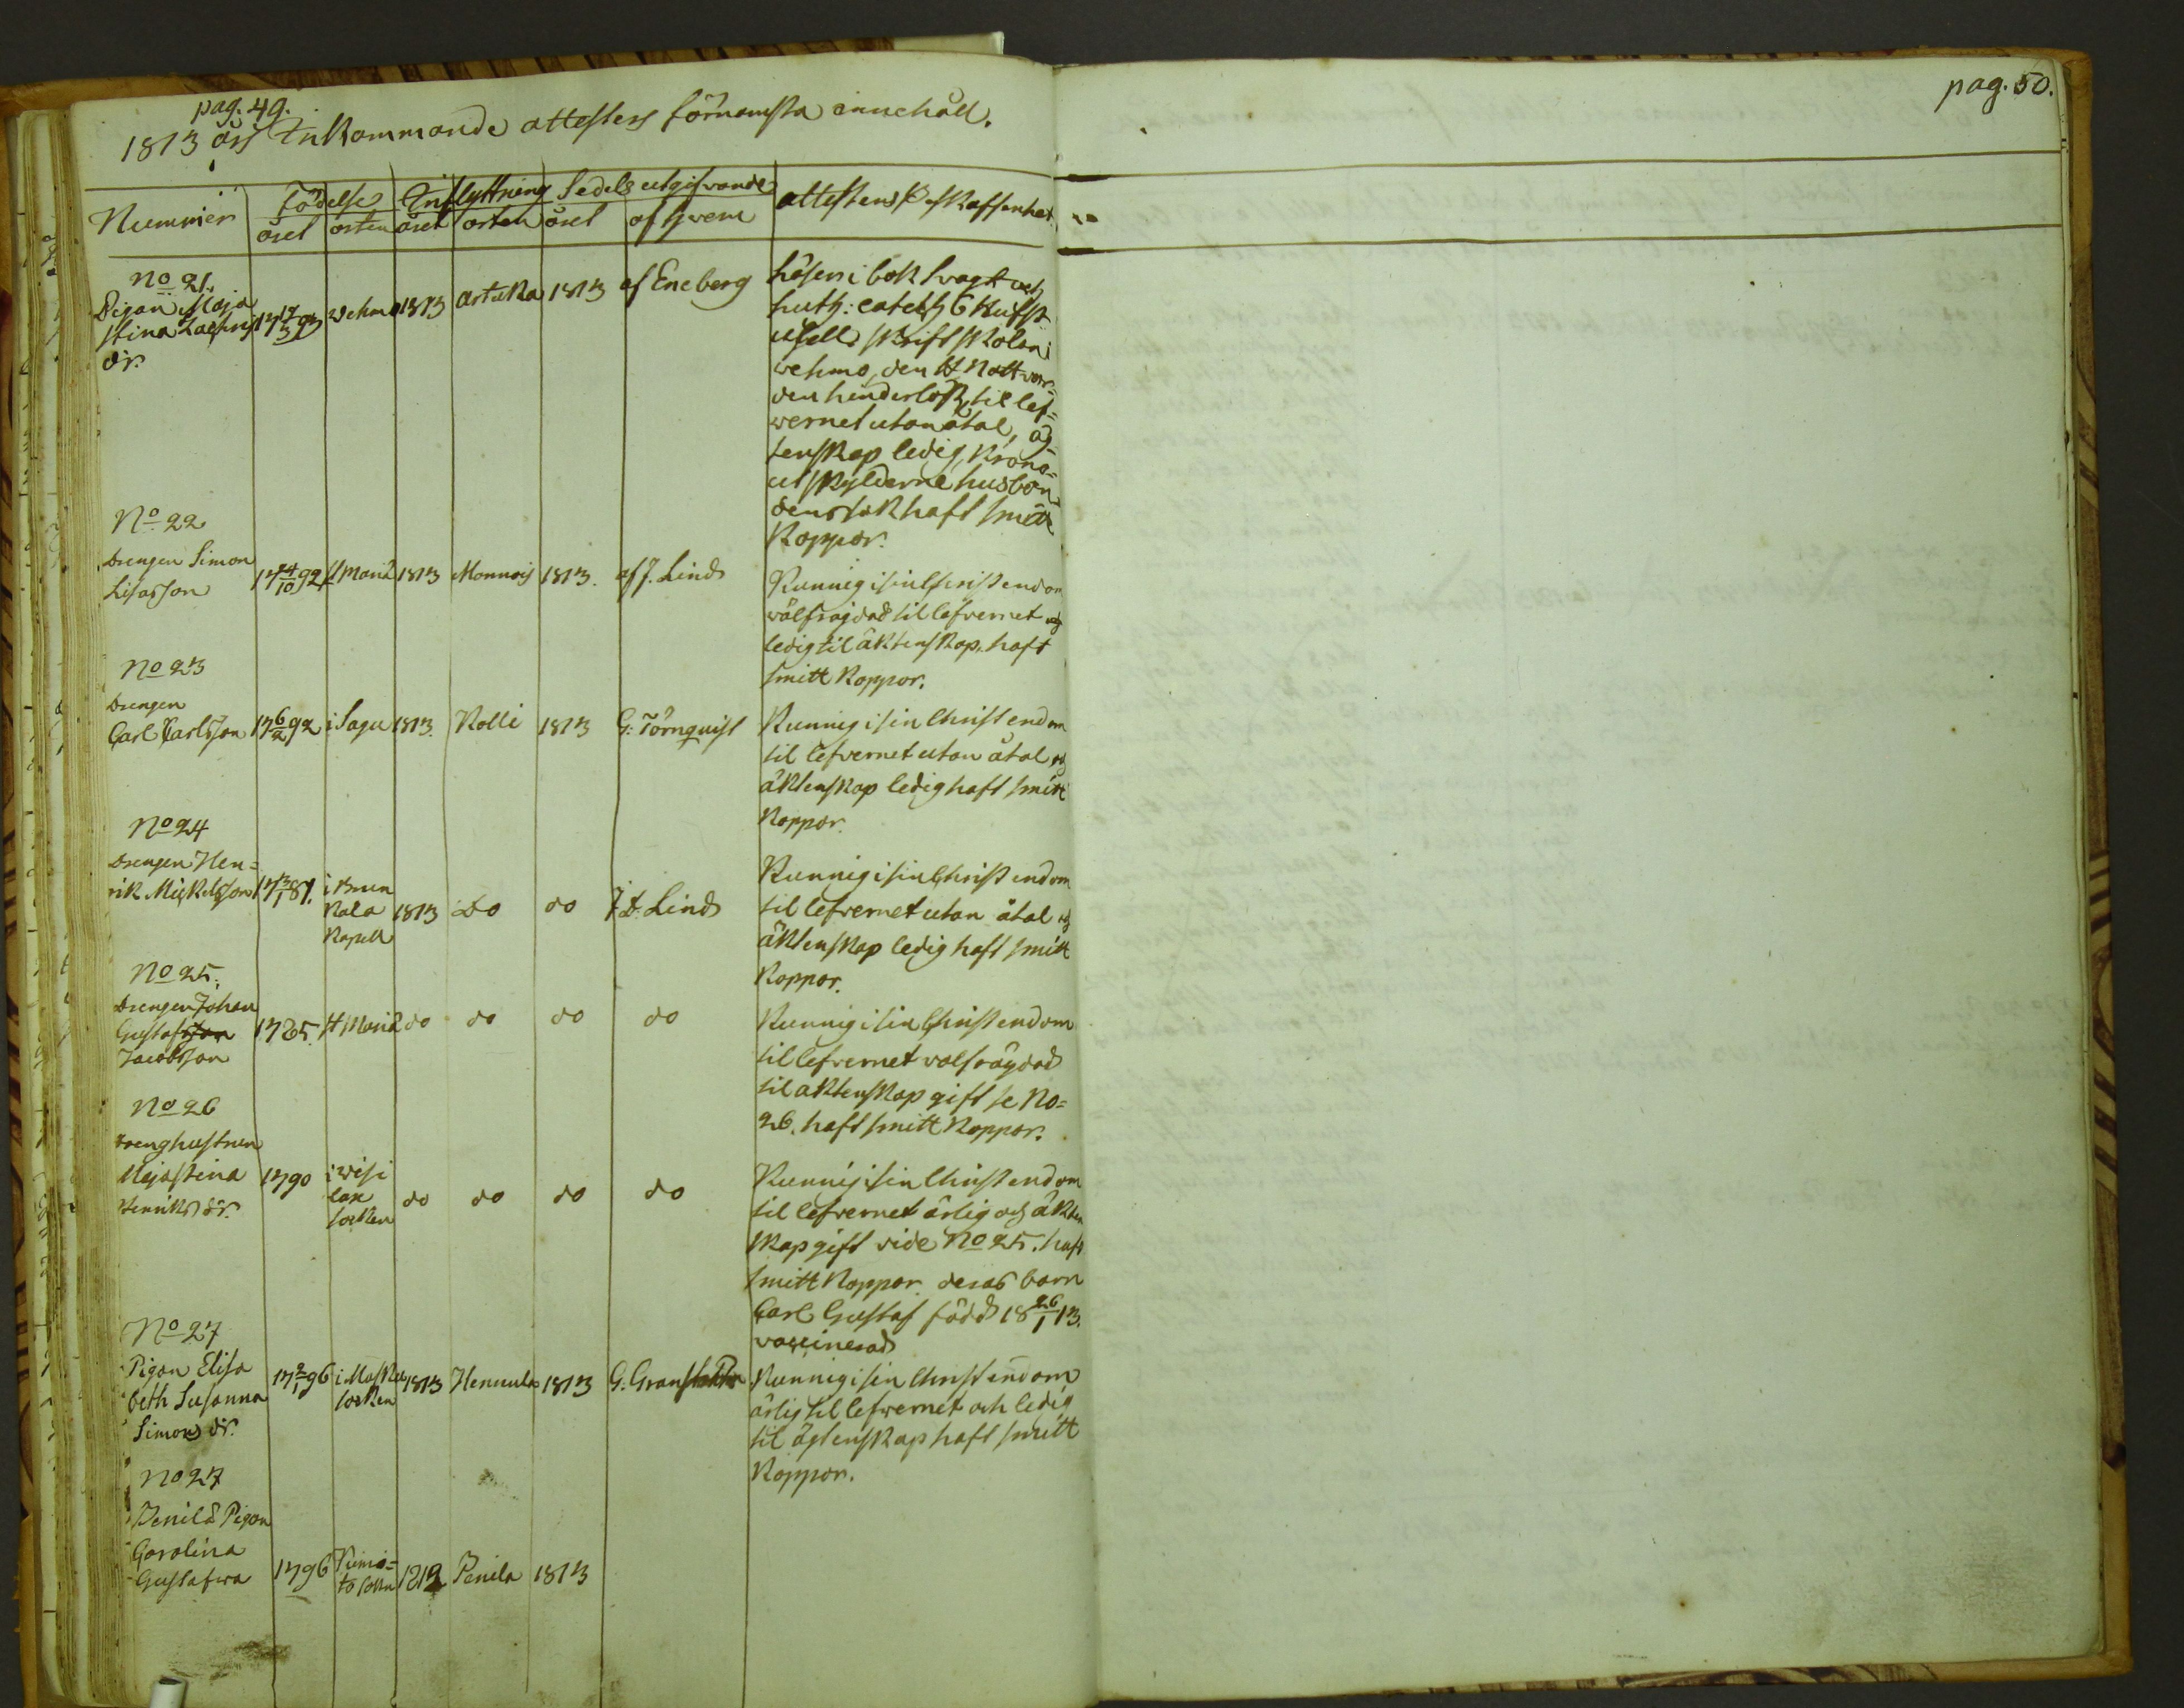 pag. 49.
pag. 50.
1813 års Inkommande attesters förnamsta innehåll.
Nummer Födelse Inflyttning Sedels utgifvande attestens beskaffenhet
året orten året orten året af hvem
No 21.
Pigan Maja
Stina Zachris
dr. 17 17/3 93 Vehmo 1813 Artuka 1813 af Eneberg
läser i bok svagt och
Luth: catech 6 Hufst
skrift skolan i
wehmo, den H Nattvar=
den til lef=
wernet utan åtal, äg=
tenskap ledig, krono=
utskylderne husbon
dens sak haft smitt
Koppor.
No 22
Drengen Simon
Lisasson 17 24/10 92 St Mariæ 1813 Monnois 1813. af J. Lind
Kunnig i sin Christendom
wälfrägdad til lefvernet och
ledig til äktenskap. haft
smitt Koppor.
No 23
Drengen
Carl Carlsson 17 6/2 92 i Sagu 1813. Kolli 1813 G: Törnquist
Kunnig i sin Christendom
til lefvernet utan åtal och
äktenskap ledig haft smitt
Koppor.
No 24
Drengen Hen=
rik Mickelsson 17 3/1 81. i Brun
Kala
Kapell 1813 Do do J. D. Lind
Kunnig i sin Christendom
til lefvernet utan åtal och
äktenskap ledig haft smitt
Koppor.
No 25.
Drengen Johan
Gustafsson
Jacobsson 1785. St Mariæ do do do do
Kunnig i sin Christendom
til lefvernet valfrägdad
til aktenskap gift se No=
26. haft smitt Koppor.
No 26
Drenghustrun
Maja Stina
Henriks dr. 1790 i Wisi
lax
socken do do do do
Kunnig i sin Christendom
til lefvernet ärlig och äkten
skap gift vide No 25. haft
smitt Koppor deras barn
Carl Gustaf född 18 26/1 13.
vaccinerad
No 27
Pigan Elisa
beth Susanna
Simons dr. 17 2/1 96 i Masku
socken 1813 Hennula 1813 G. Granstedt
Kunnig i sin Christendom
ärlig til lefwernet och ledig
til ägtenskap haft smitt
Koppor.
No 27
Penilä Pigan
Carolina
Gustafwa 1796 Kimi=
to sokn 1812 Penila 1813